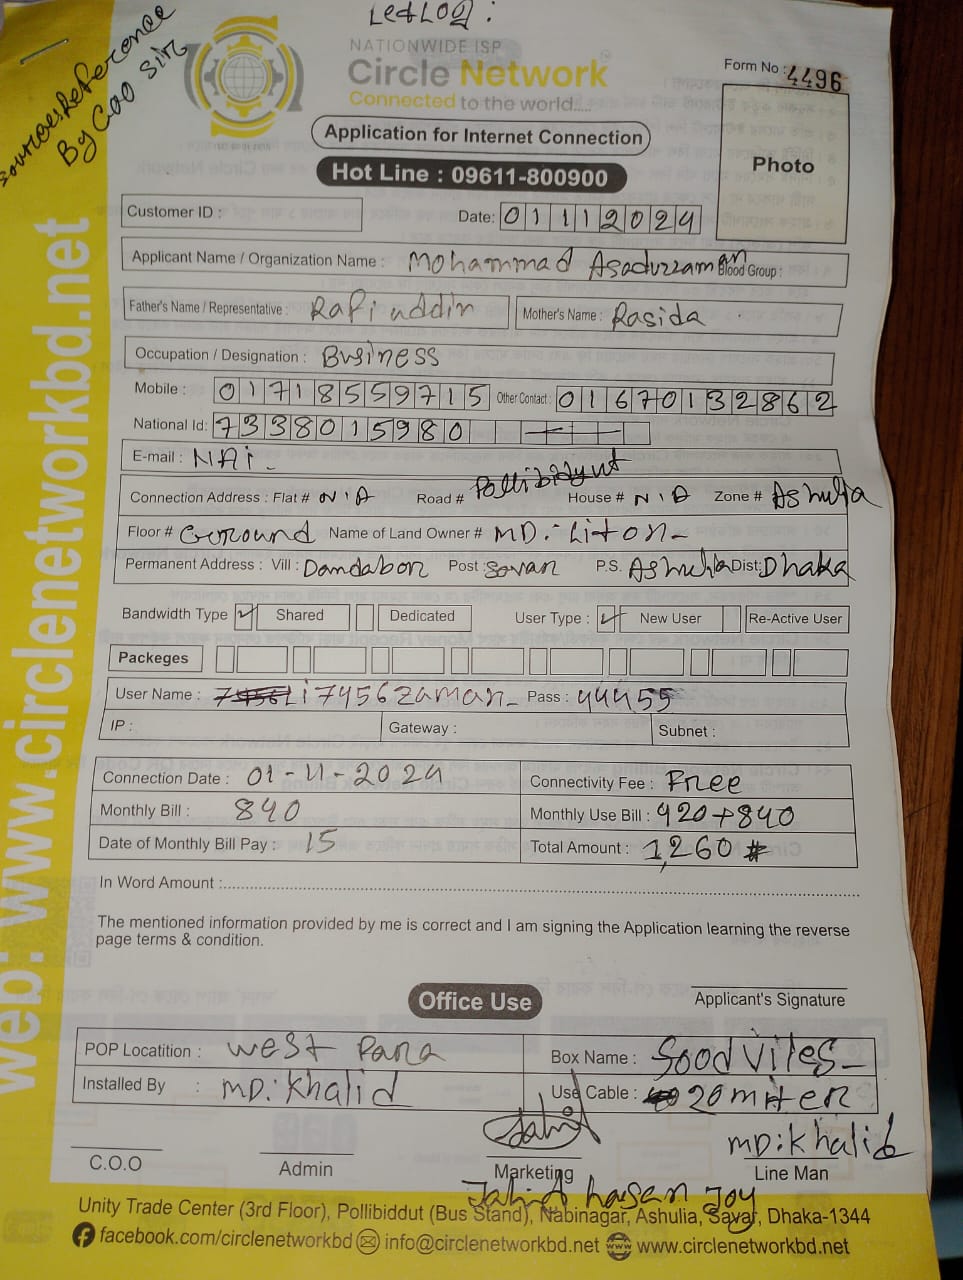 LedLOQ :
source:Reference
By COO sir
NATIONWIDE ISP
Circle Network
Connected to the world.....
Form No : 4496
Application for Internet Connection
Hot Line : 09611-800900
Photo
Customer ID :
Date: 01112024
Applicant Name / Organization Name : Mohammad Asaduzzaman Blood Group :
Father's Name / Representative : Rafiuddin Mother's Name : Rasida
Occupation / Designation : Business
Mobile : 01718559715 Other Contact : 01670132862
National Id: 7338015980
E-mail : NAi
Connection Address : Flat # N'A Road # Pollibidyut House # N'A Zone # Ashulia
Floor # Ground Name of Land Owner # MD. Liton
Permanent Address : Vill : Dandabon Post : Savan P.S. Ashulia Dist: Dhaka
Bandwidth Type ✓ Shared Dedicated User Type : ✓ New User Re-Active User
Packeges
User Name : i7456zaman Pass : 44455
IP : Gateway : Subnet :
Connection Date : 01-11-2024 Connectivity Fee : Free
Monthly Bill : 840 Monthly Use Bill : 420+840
Date of Monthly Bill Pay : 15 Total Amount : 1,260 #
In Word Amount :
The mentioned information provided by me is correct and I am signing the Application learning the reverse
page terms & condition.
Applicant's Signature
Office Use
POP Locatition : West Para Box Name : Sood Viles
Installed By : MD: Khalid Use Cable : 20 miter
MD: Khalid
C.O.O Admin Marketing Line Man
Jahid hasan Joy
Unity Trade Center (3rd Floor), Pollibiddut (Bus Stand), Nabinagar, Ashulia, Savar, Dhaka-1344
facebook.com/circlenetworkbd info@circlenetworkbd.net www.circlenetworkbd.net
web: www.circlenetworkbd.net